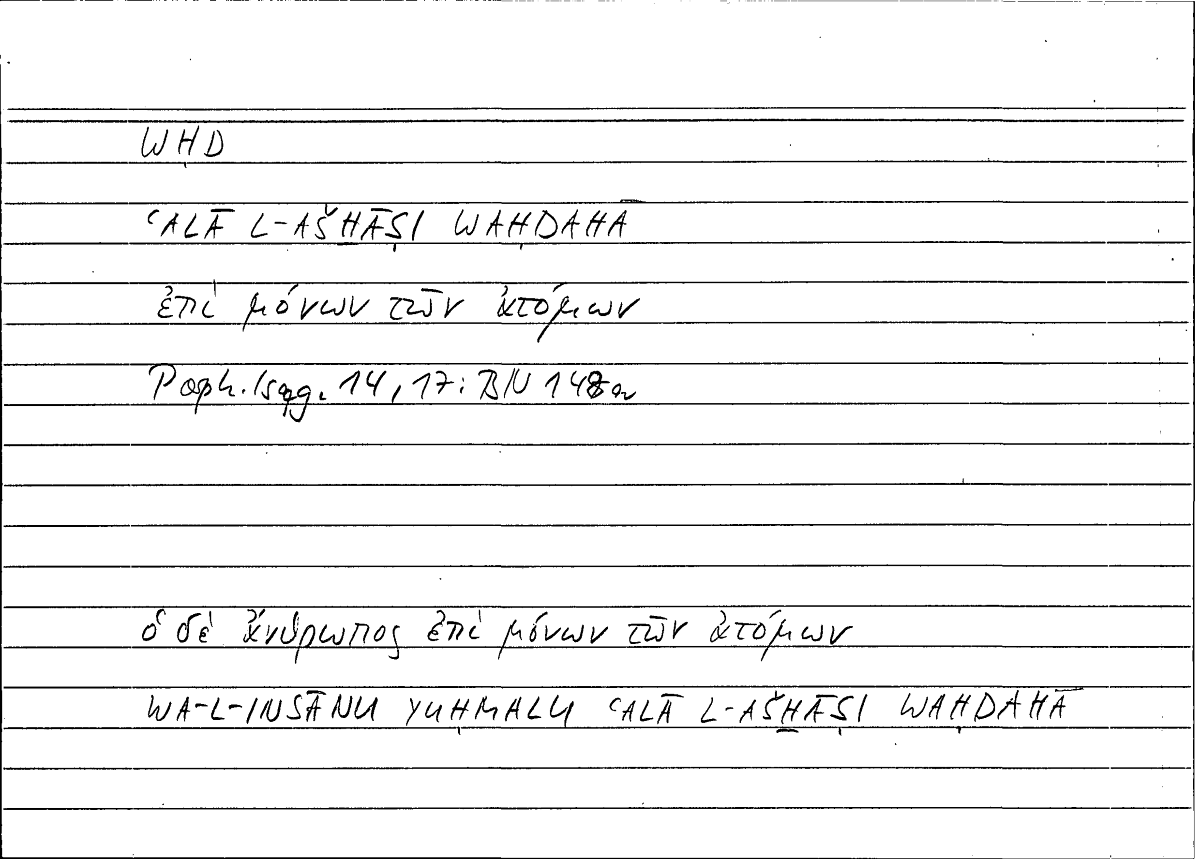 WḤD
ʿALĀ L-AŠḪĀṢI WAḤDAHĀ
ἐπὶ μόνων τῶν ἀτόμων
Porph. Isag. 14, 17: BN 148a
ὁ δὲ ἄνθρωπος ἐπὶ μόνων τῶν ἀτόμων
WA-L-INSĀNU YUḤMALU ʿALĀ L-AŠḪĀṢI WAḤDAHĀ